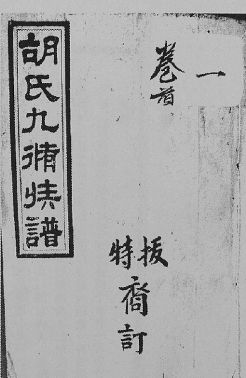 一
卷首
胡氏九脩族譜
振特
裔訂